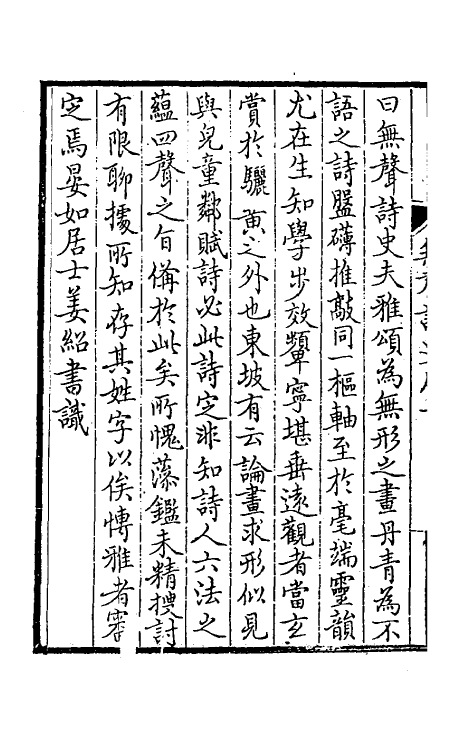 曰無聲詩史夫雅頌為無形之畫丹青為不
語之詩盤礴推敲同一樞軸至於毫端靈韻
尤在生知學步效顰寧堪垂遠觀者當玄
賞於驪黃之外也東坡有云論畫求形似見
與兒童鄰賦詩必此詩定非知詩人六法之
蘊四聲之旨備於此矣所愧藻鑑未精搜討
有限聊據所知存其姓字以俟博雅者審
定焉晏如居士姜紹書識